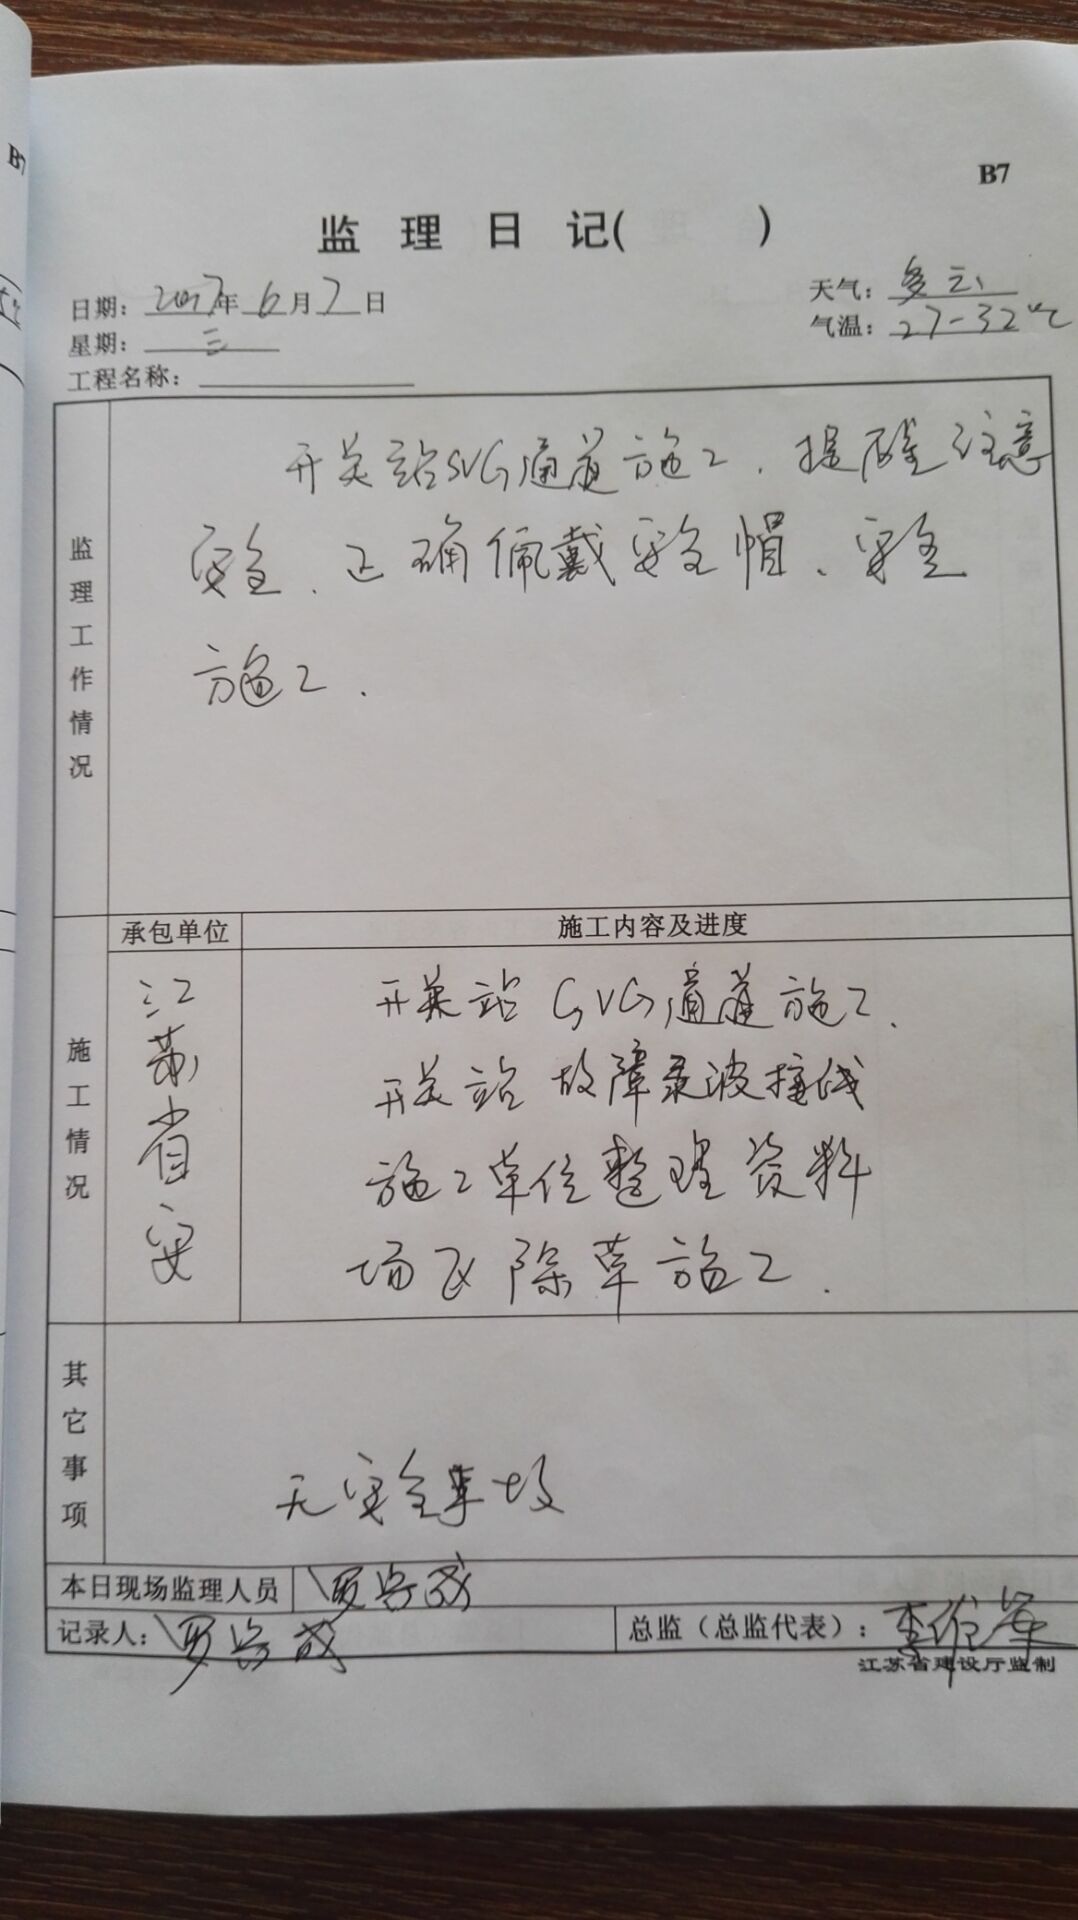 B7
监理日记( )
日期: 2017年6月7日
天气: 多云
星期: 三
气温: 27-32℃
工程名称:
监理工作情况
开关站SVG通道施工.提醒注意
安全.正确佩戴安全帽、安全
施工.
承包单位
施工内容及进度
施工情况
江苏省安
开关站GVG通道施工.
开关站故障录波接线
施工单位整理资料
场区除草施工.
其它事项
无安全事故
本日现场监理人员
记录人:
总监（总监代表）: 李
江苏省建设厅监制